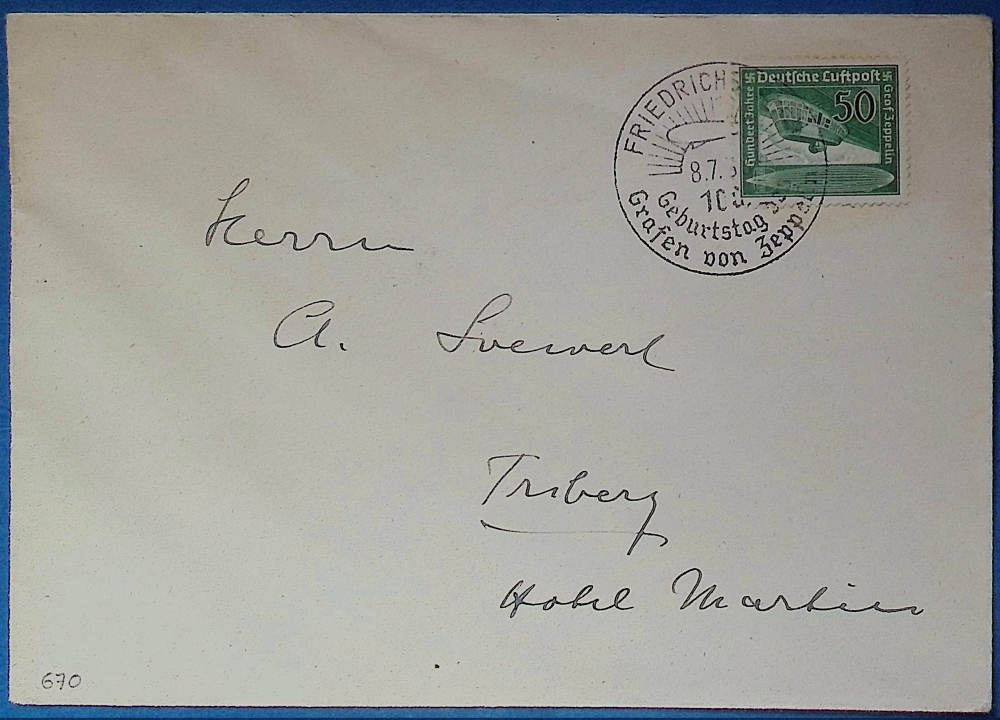 FRIEDRICHS
8.7.
100.
Geburtstag des
Grafen von Zeppelin
Deutsche Luftpost
Hundert Jahre
50
Graf Zeppelin
Herrn
A.
Triberg
Hotel Martin
670